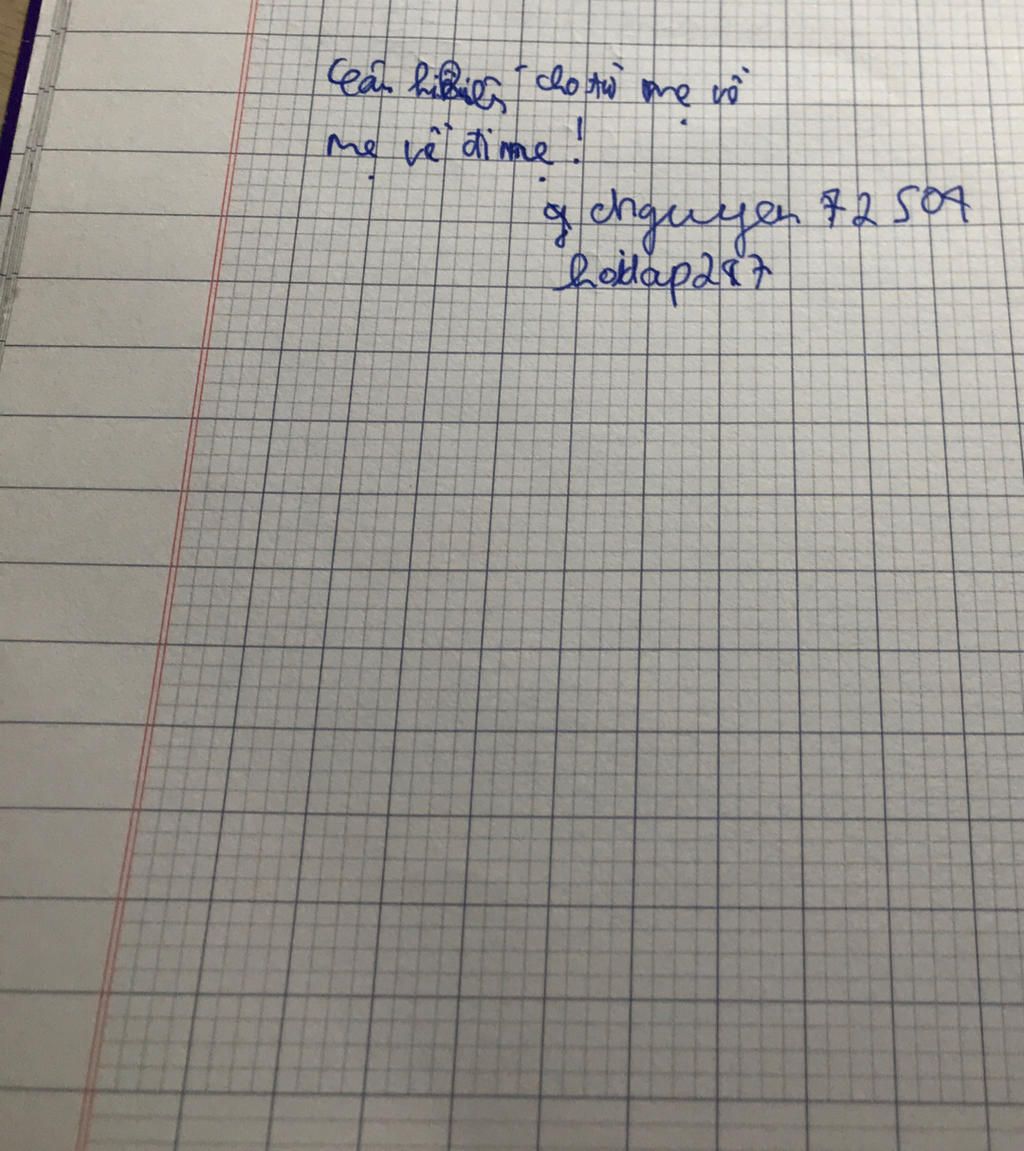 cho từ mẹ về
mẹ về đi mẹ !
chguyen 72504
hoidap247